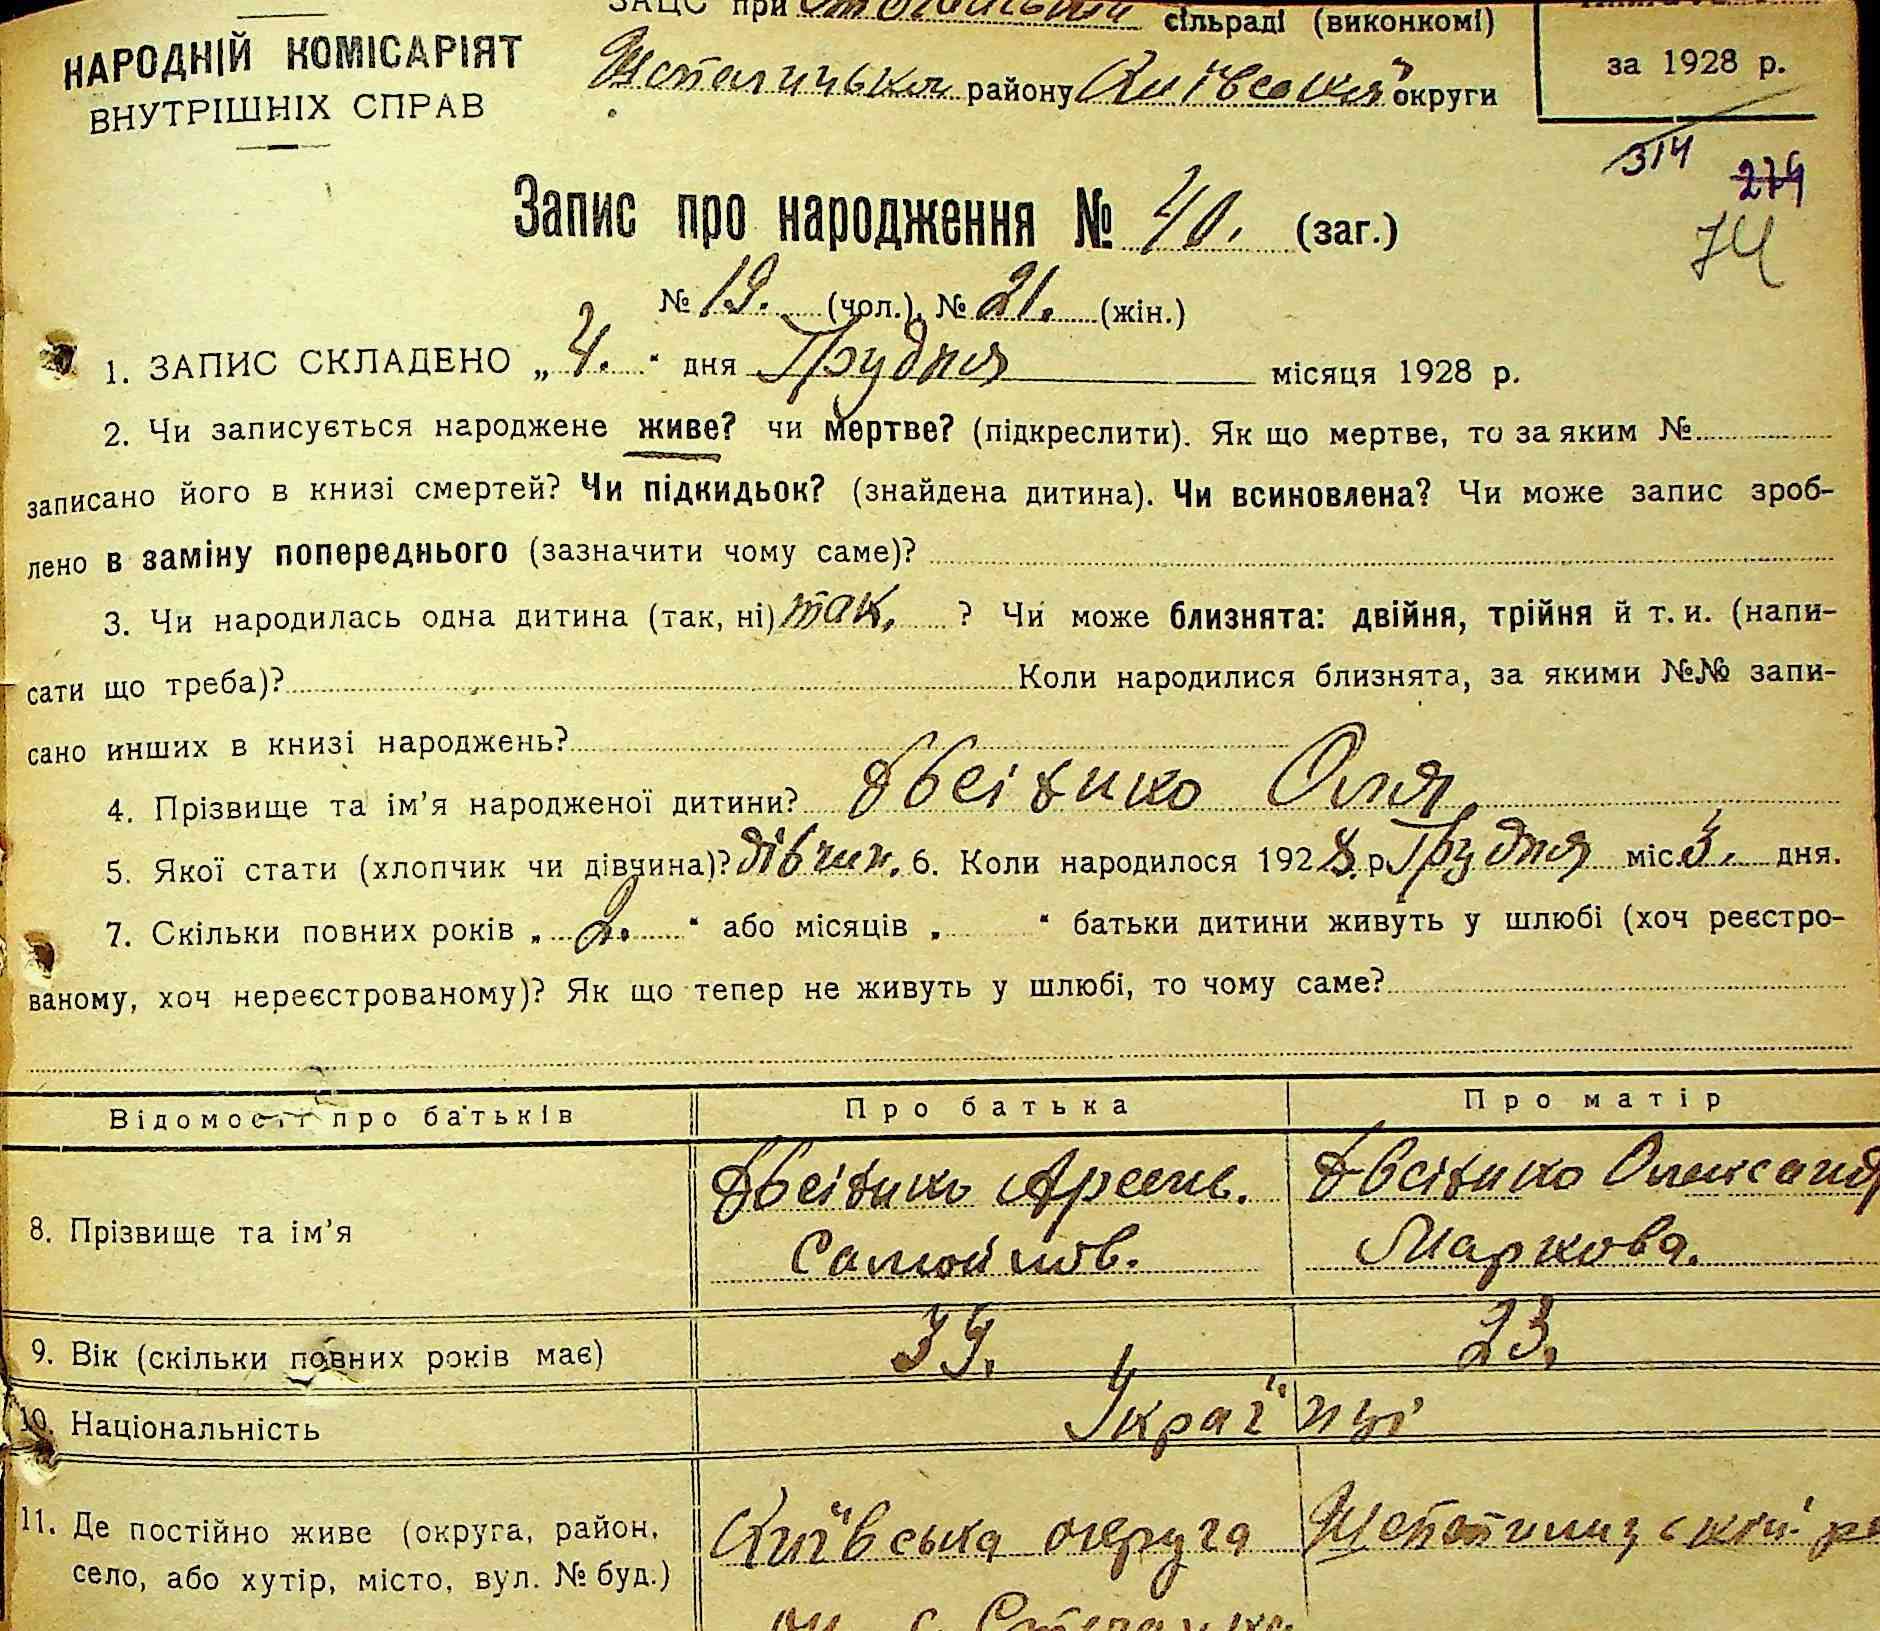 НАРОДНІЙ КОМІСАРІЯТ
ВНУТРІШНІХ СПРАВ
ЗАЦС при сільраді (виконкомі)
району Київської округи
за 1928 р.
314
274
74
Запис про народження № 40. (заг.)
№ 19. (чол.), № 21. (жін.)
1. ЗАПИС СКЛАДЕНО „ 4. “ дня Грудня місяця 1928 р.
2. Чи записується народжене живе? чи мертве? (підкреслити). Як що мертве, то за яким №
записано його в книзі смертей? Чи підкидьок? (знайдена дитина). Чи всиновлена? Чи може запис зроб-
лено в заміну попереднього (зазначити чому саме)?
3. Чи народилась одна дитина (так, ні) так. ? Чи може близнята: двійня, трійня й т. и. (напи-
сати що треба)? Коли народилися близнята, за якими №№ запи-
сано инших в книзі народжень?
4. Прізвище та ім’я народженої дитини? Оля
5. Якої стати (хлопчик чи дівчина)? дівчин. 6. Коли народилося 1928. р. Грудня міс. 3. дня.
7. Скільки повних років „ 2. “ або місяців „ “ батьки дитини живуть у шлюбі (хоч реєстро-
ваному, хоч нереєстрованому)? Як що тепер не живуть у шлюбі, то чому саме?
Відомості про батьків Про батька Про матір
8. Прізвище та ім’я Арсень. Олександ
Самойлов. Маркова.
9. Вік (скільки повних років має) 23.
10. Національність Українці
11. Де постійно живе (округа, район, Київська округа
село, або хутір, місто, вул. № буд.)